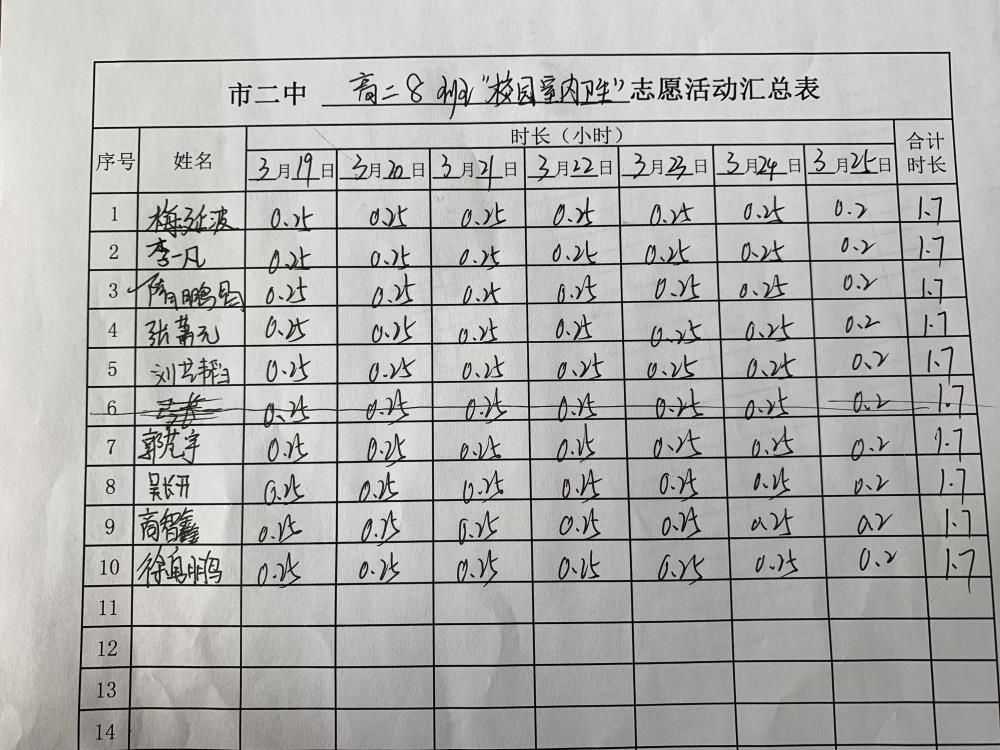 市二中 高二8班"校园室内卫生"志愿活动汇总表
序号 姓名 时长（小时） 合计时长
3月19日 3月20日 3月21日 3月22日 3月23日 3月24日 3月25日
1 梅延波 0.25 0.25 0.25 0.25 0.25 0.25 0.2 1.7
2 李一凡 0.25 0.25 0.25 0.25 0.25 0.25 0.2 1.7
3 0.25 0.25 0.25 0.25 0.25 0.25 0.2 1.7
4 0.25 0.25 0.25 0.25 0.25 0.25 0.2 1.7
5 0.25 0.25 0.25 0.25 0.25 0.25 0.2 1.7
6 0.25 0.25 0.25 0.25 0.25 0.25 0.2 1.7
7 0.25 0.25 0.25 0.25 0.25 0.25 0.2 1.7
8 0.25 0.25 0.25 0.25 0.25 0.25 0.2 1.7
9 高智鑫 0.25 0.25 0.25 0.25 0.25 0.25 0.2 1.7
10 0.25 0.25 0.25 0.25 0.25 0.25 0.2 1.7
11
12
13
14